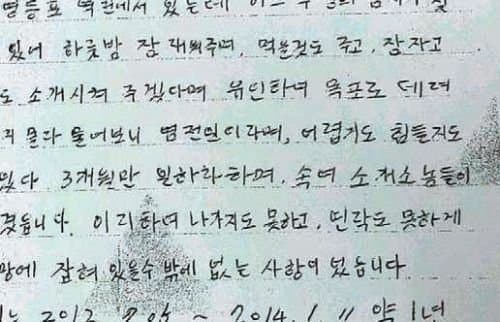 영등포 역전에서 있는데
있어 하룻밤 잠 재워주며, 먹을것도 주고, 잠자고
도 소개시켜 주겠다며 유인하며 목포로 데려
물어보니 염전일이라며, 어렵기도 힘들지도
있다 3개월만 일하라하며, 속여 소개소놈들이
겼습니다. 이리하여 나가지도 못하고, 연락도 못하게
망에 잡혀 있을수 밖에 없는 사항이 었습니다
는 2012 ~ 2014. 1. 약 1년